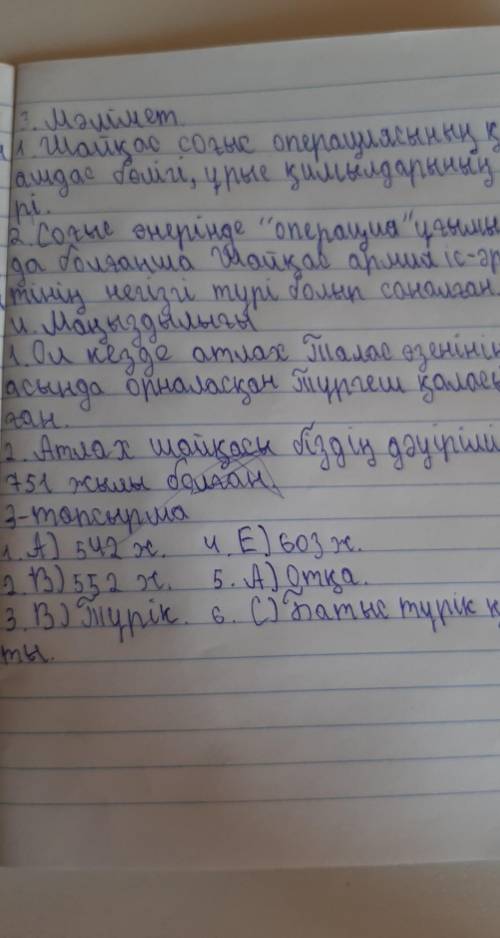 3. Мәлімет
1. Шайқас соғыс операциясының қ
амдас бөлігі, ұрыс қимылдарының
рі.
2. Соғыс өнерінде "операция" ұғымы
да болғанша Шайқас армия іс-әр
тінің негізгі түрі болып саналған.
4. Маңыздылығы
1. Ол кезде атлах Талас өзенінің
асында орналасқан Түргеш қаласы
ған.
2. Атлах шайқасы біздің дәуіріміз
751 жылы болған.
3-тапсырма
1. А) 542 ж. 4. Е) 603 ж.
2. В) 552 ж. 5. А) Отқа.
3. В) Түрік. 6. С) Батыс түрік қ
ты.